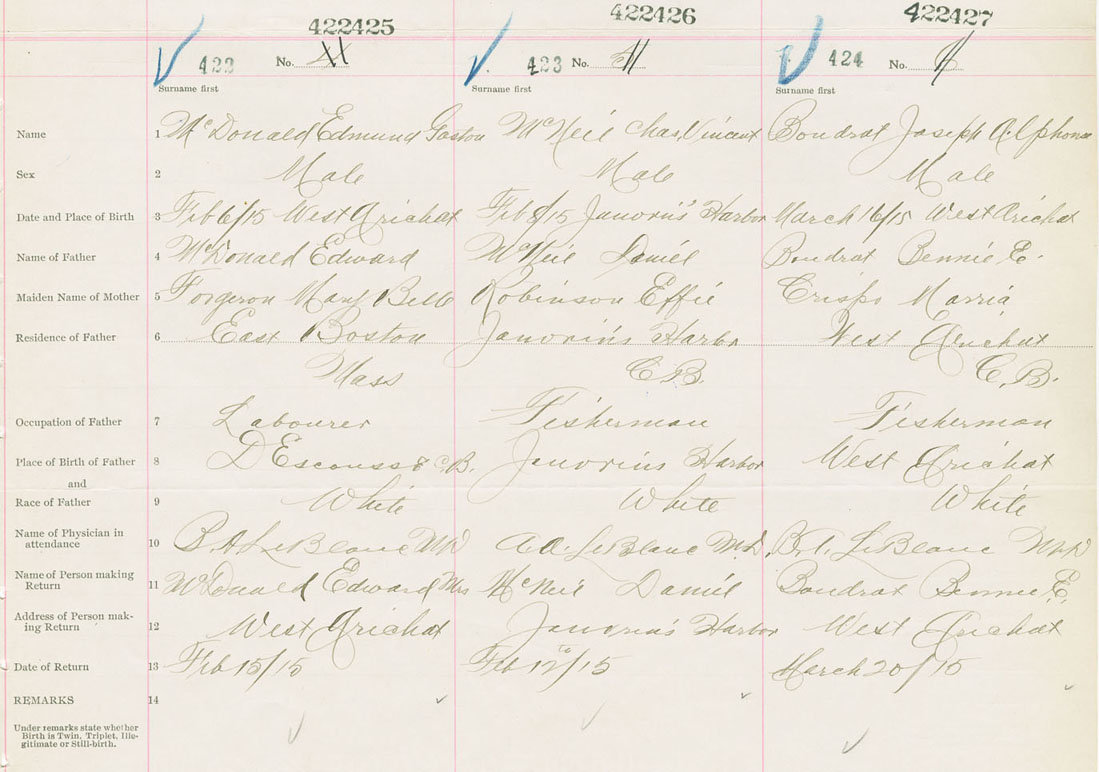 422425 422426 422427
422 No. 423 No. 424 No.
Surname first Surname first Surname first
Name 1 McDonald Edmund Gaston McNeil Chas. Vincent Boudrot Joseph Alphonse
Sex 2 Male Male Male
Date and Place of Birth 3 Feb 6/15 West Arichat Feb 8/15 Janvrin's Harbor March 16/15 West Arichat
Name of Father 4 McDonald Edward McNeil Daniel Boudrot Bennie E.
Maiden Name of Mother 5 Forgeron Mary Belle Robinson Effie Crispo Marria
Residence of Father 6 East Boston Janvrin's Harbor West Arichat
Mass C.B. C.B.
Occupation of Father 7 Labourer Fisherman Fisherman
Place of Birth of Father 8 D'Escousse C.B. Janvrins Harbor West Arichat
and
Race of Father 9 White White White
Name of Physician in
attendance 10 B.A. LeBlanc MD LeBlanc M.D. LeBlanc MD
Name of Person making
Return 11 McDonald Edward Mrs McNeil Daniel Boudrot Bennie E.
Address of Person mak-
ing Return 12 West Arichat Janvrin's Harbor West Arichat
Date of Return 13 Feb 15/15 Feb /15 March 20/15
REMARKS 14
Under remarks state whether
Birth is Twin, Triplet, Ille-
gitimate or Still-birth.